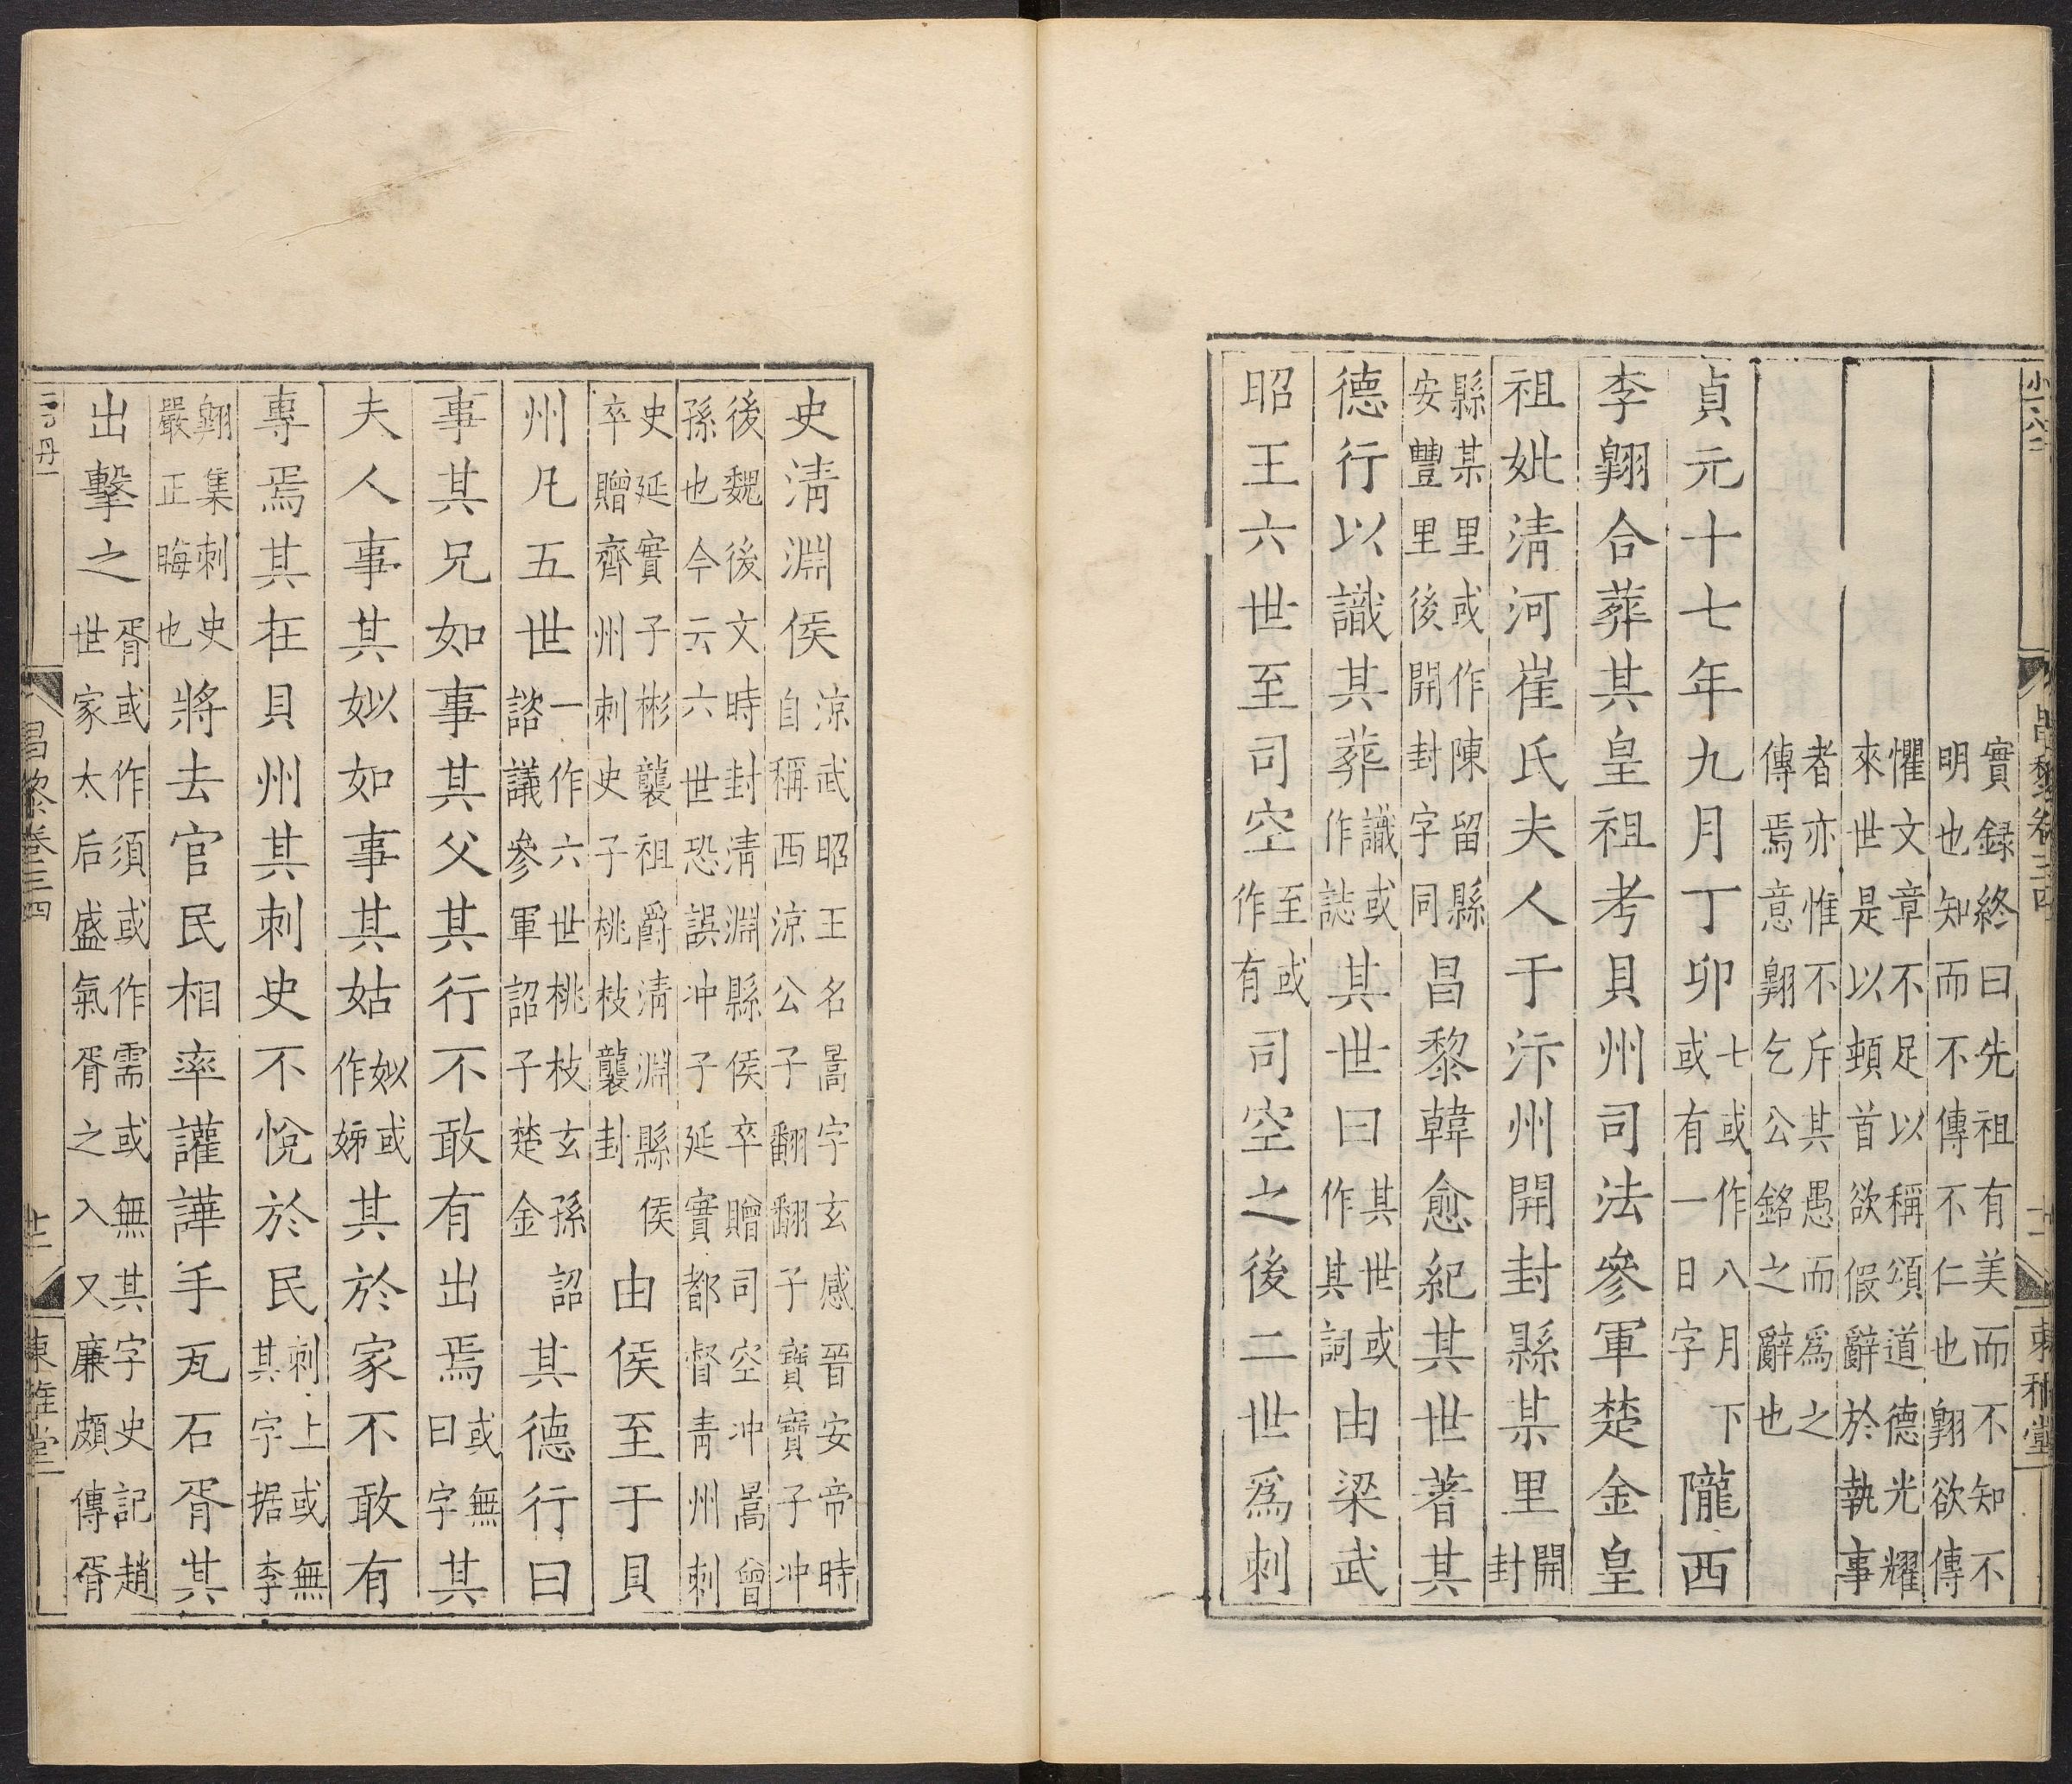 實録終曰先祖有美而不知不
明也知而不傳不仁也翺欲傳
懼文章不足以稱頌道德光耀
來世是以頓首欲假辭於執事
者亦惟不斥其愚而爲之
傳焉意翺乞公銘之辭也
貞元十七年九月丁卯七或作八月下或有一日字隴西
李翺合葬其皇祖考貝州司法參軍楚金皇
祖妣淸河崔氏夫人于汴州開封縣某里開封
縣某里或作陳留縣安豐里後開封字同昌黎韓愈紀其世著其
德行以識其葬識或作誌其世曰其世或作其詞由梁武
昭王六世至司空至或作有司空之後二世爲刺
史淸淵侯涼武昭王名暠字玄感晉安帝時自稱西涼公子翻翻子寶寶子冲
後魏後文時封淸淵縣侯卒贈司空冲暠曾孫也今云六世恐誤冲子延實都督靑州刺
史延實子彬襲祖爵淸淵縣侯卒贈齊州刺史子桃枝襲封由侯至于貝
州凡五世一作六世桃枝玄孫詔諮議參軍詔子楚金其德行曰
事其兄如事其父其行不敢有出焉或無曰字其
夫人事其姒如事其姑姒或作姊其於家不敢有
專焉其在貝州其刺史不悅於民刺上或無其字据李
翺集刺史嚴正晦也將去官民相率讙譁手瓦石胥其
出擊之胥或作須或作需或無其字史記趙世家太后盛氣胥之入又廉頗傳胥
昌黎卷三四
東雅堂